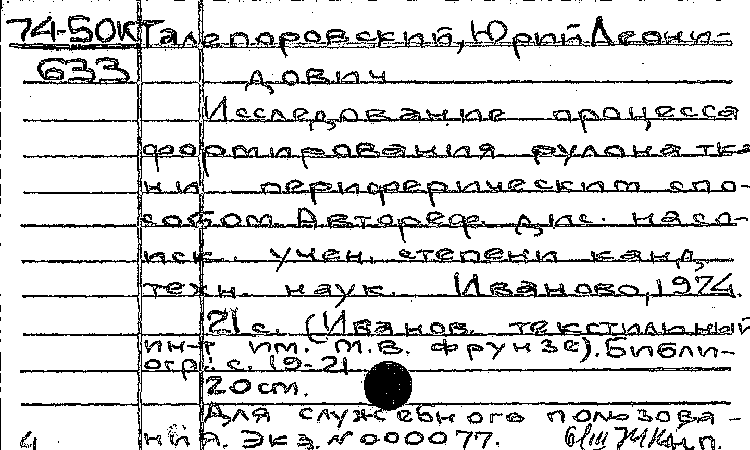 74-50КТ Талепоровский, Юрий Леони-
633 дович
Исследование процесса
формирования рулона тка
ни периферическим спо-
собом. Автореф. дис. на со-
иск. учен. степени канд.
техн. наук. Иваново, 1974.
21 с. (Иванов. текстильный
ин-т им. М.В. Фрунзе). Библи-
огр.: с. 19-21
20 см.
Для служебного пользова-
4 ния. Экз. № 000077.